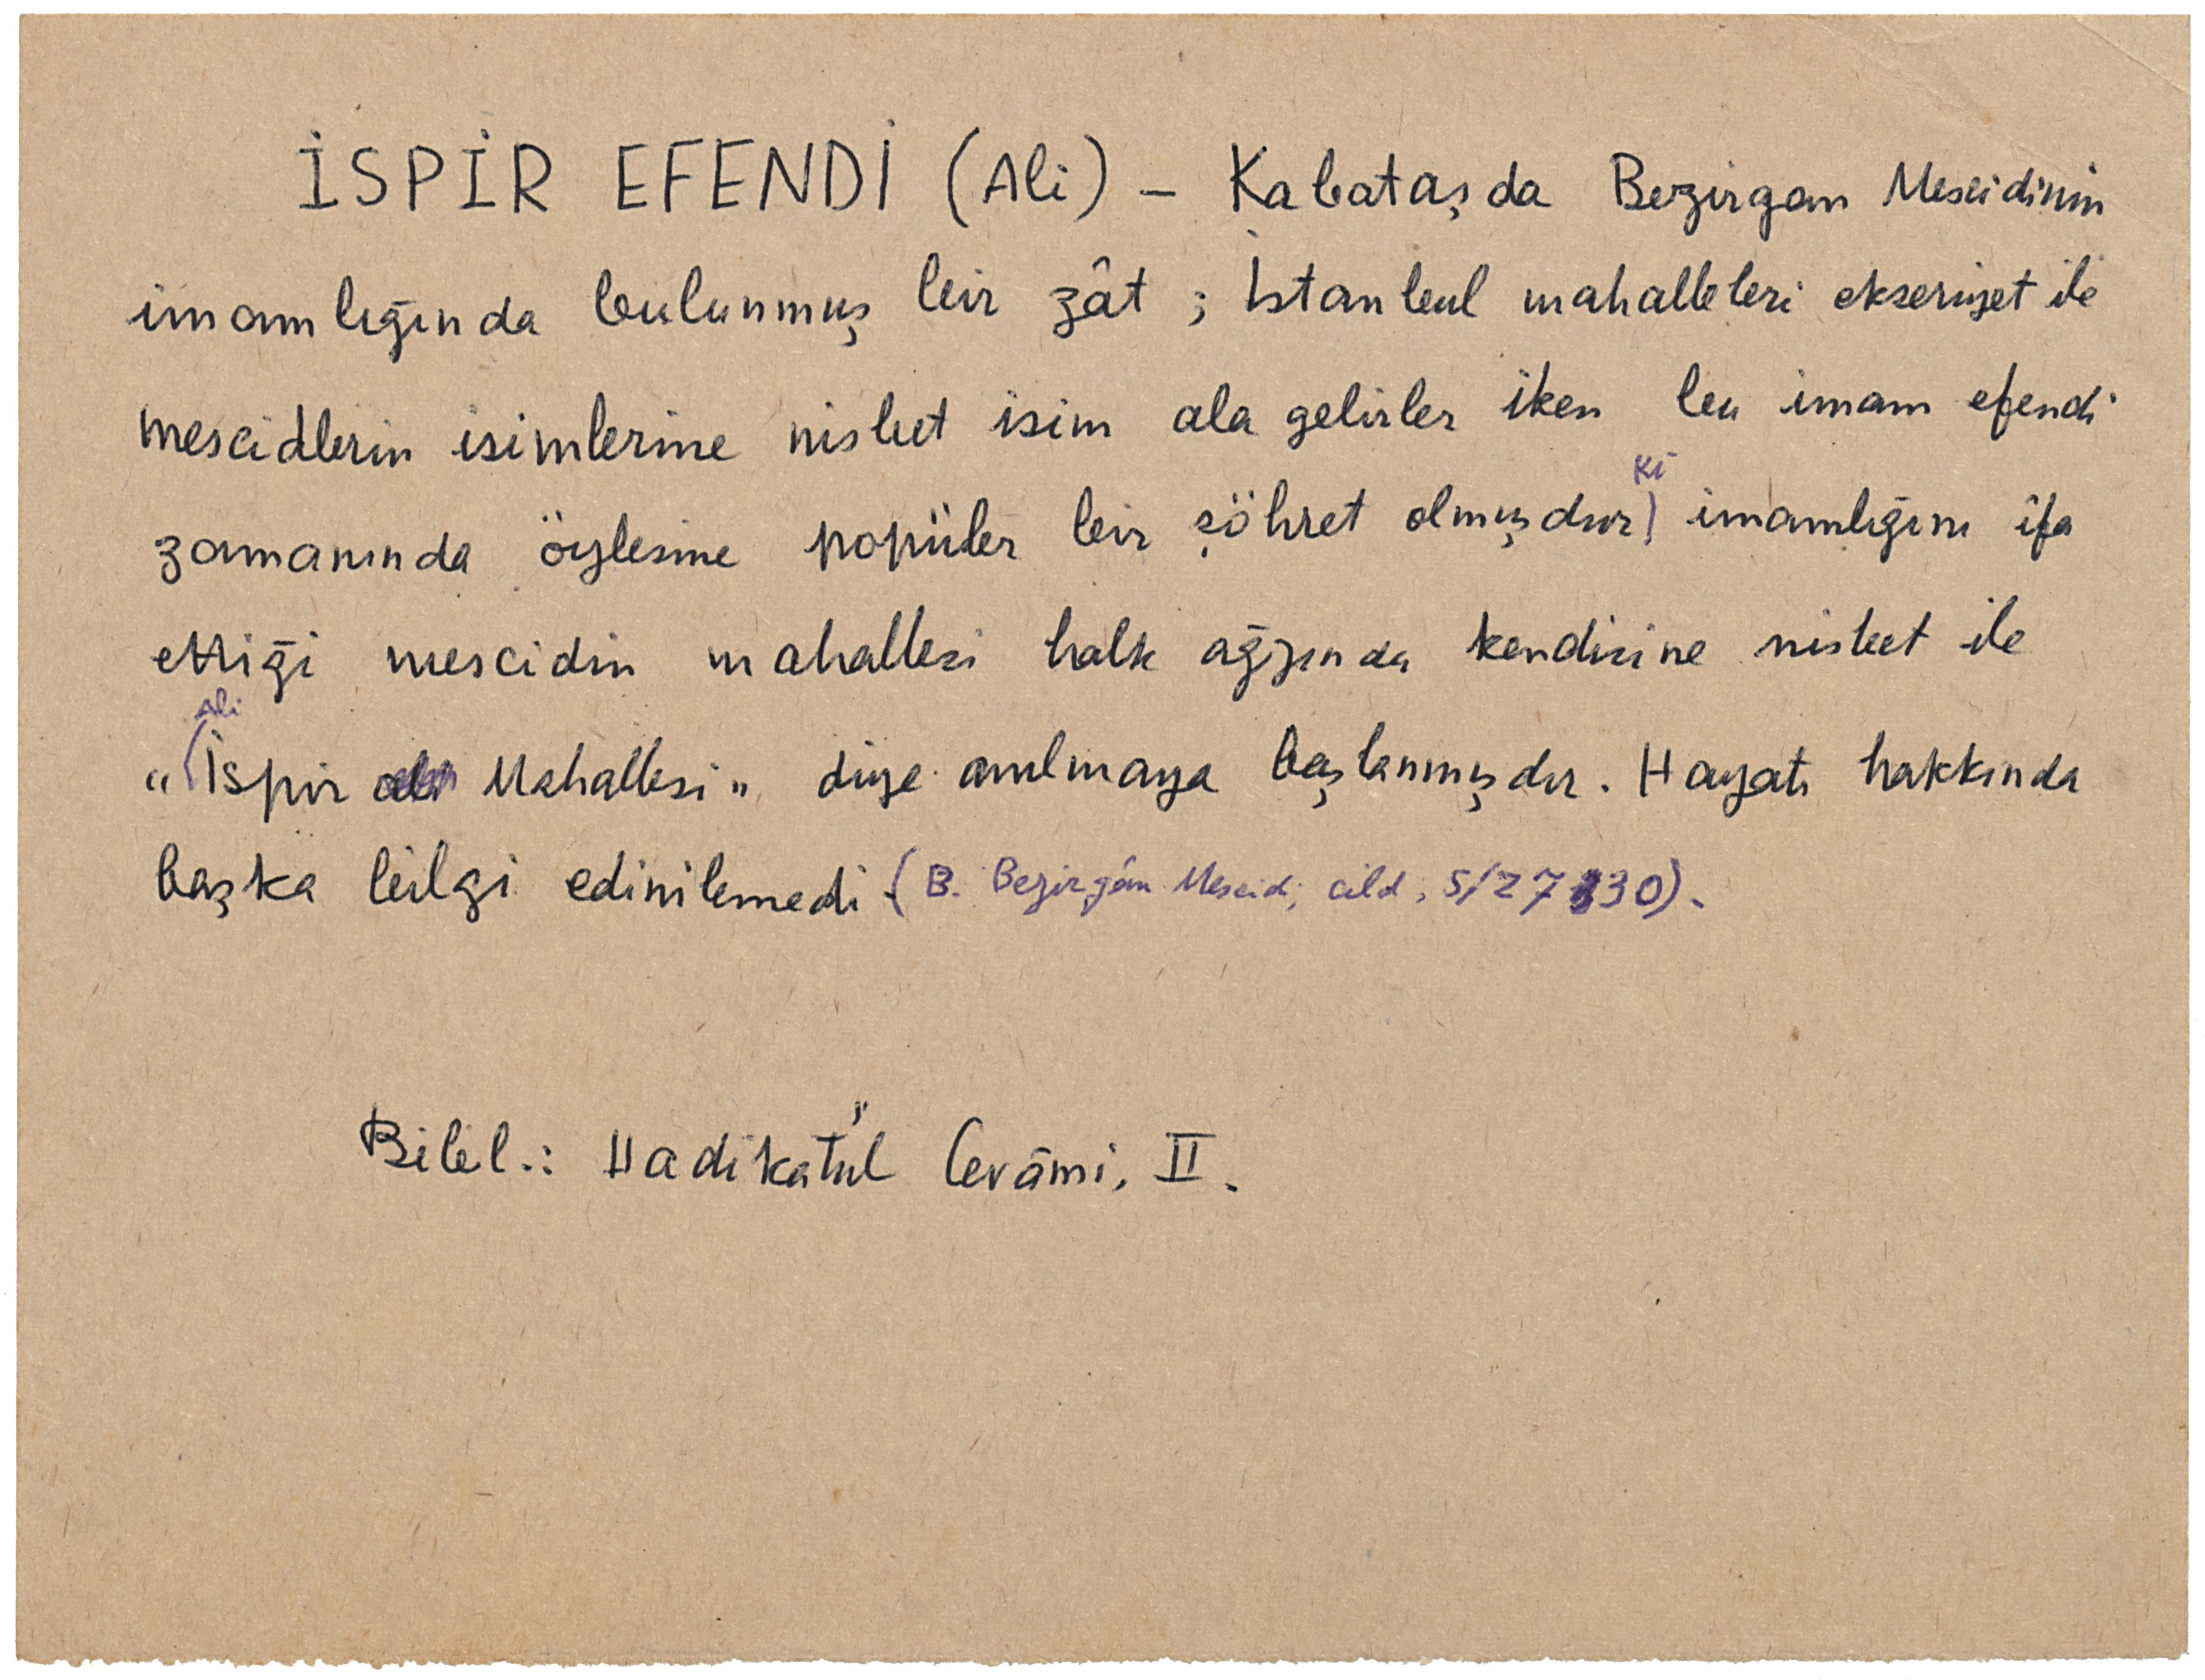 İSPİR EFENDİ (Ali) – Kabataşda Bezirgan Mescidinin
imamlığında bulunmuş bir zât ; İstanbul mahalleleri ekseriyet ile
mescidlerin isimlerine nisbet isim ala gelirler iken bu imam efendi
zamanında öylesine popüler bir şöhret olmuşdur ki imamlığını ifa
ettiği mescidin mahallesi halk ağzında kendisine nisbet ile
"Ali İspir Mahallesi" diye anılmaya başlanmışdır. Hayatı hakkında
başka bilgi edinilemedi (B. Bezirgân Mescidi, cild, 5/2730).
Bibl.: Hadikatül Cevâmi, II.